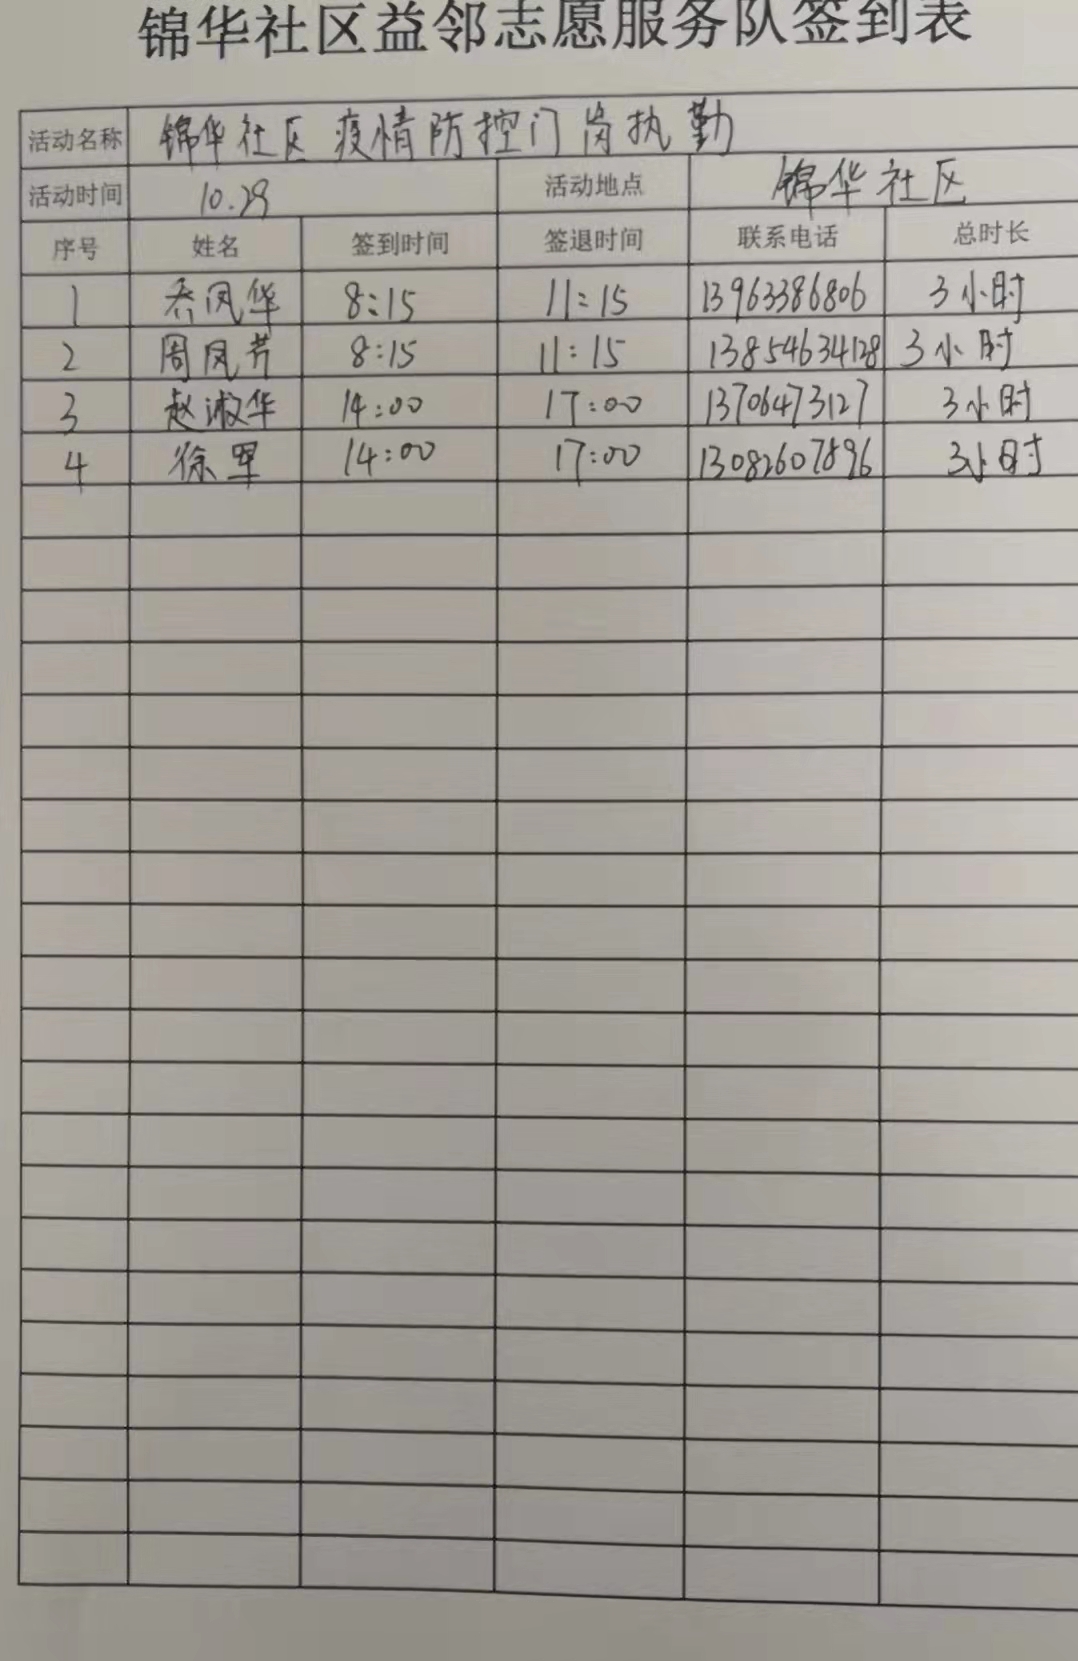 锦华社区益邻志愿服务队签到表
活动名称 锦华社区疫情防控门岗执勤
活动时间 10.29 活动地点 锦华社区
序号 姓名 签到时间 签退时间 联系电话 总时长
1 乔凤华 8:15 11:15 13963386806 3小时
2 周凤芹 8:15 11:15 13854634128 3小时
3 赵淑华 14:00 17:00 13706473127 3小时
4 徐军 14:00 17:00 13082607896 3小时